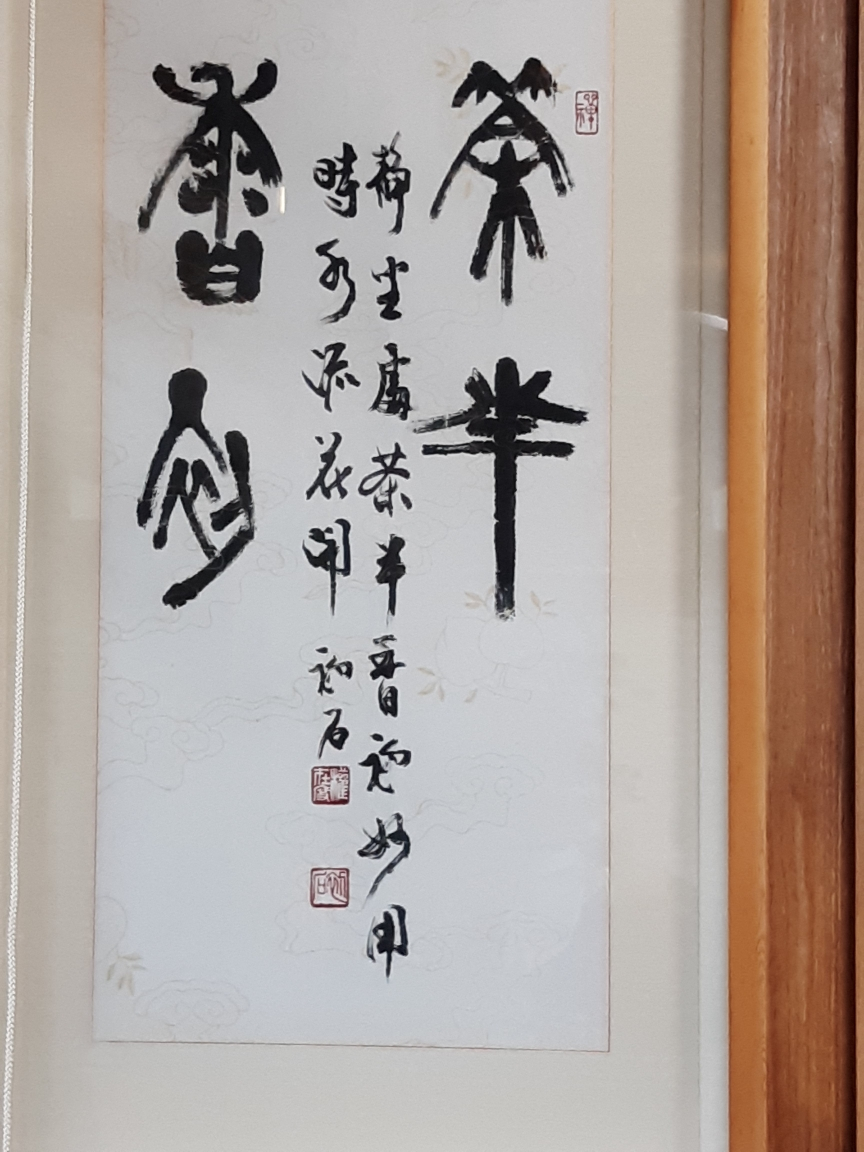 茶半
靜坐處茶半香初妙用
時水流花開 初石
初石
香初